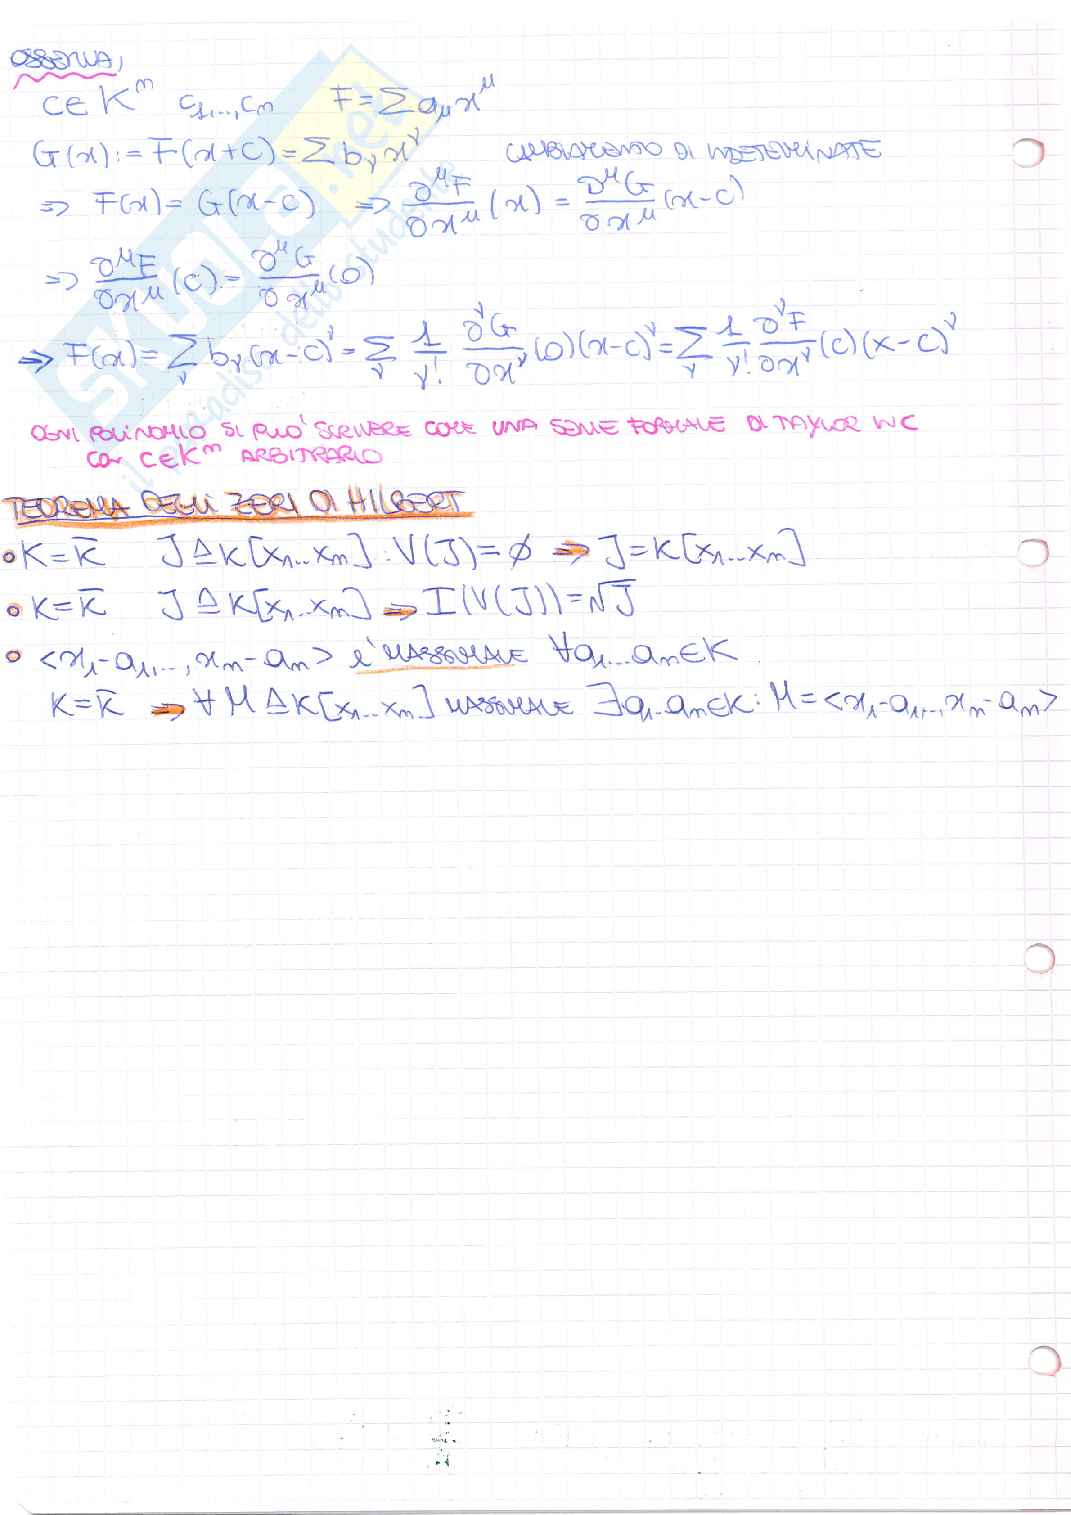 OSSERVA,
c ∈ K^n   c₁,...,cₙ   F = Σ a_μ x^μ
G(x) := F(x+c) = Σ b_ν x^ν   CAMBIAMENTO DI INDETERMINATE
⇒ F(x) = G(x-c) ⇒ ∂^μF/∂x^μ (x) = ∂^μG/∂x^μ (x-c)
⇒ ∂^μF/∂x^μ (c) = ∂^μG/∂x^μ (0)
⇒ F(x) = Σ_ν b_ν (x-c)^ν = Σ_ν 1/ν! ∂^νG/∂x^ν (0)(x-c)^ν = Σ_ν 1/ν! ∂^νF/∂x^ν (c)(x-c)^ν
OGNI POLINOMIO SI PUO' SCRIVERE COME UNA SERIE FORMALE DI TAYLOR IN C
con c∈K^n ARBITRARIO
TEOREMA DEGLI ZERI DI HILBERT
• K = K̅   J ⊴ K[x₁...xₙ] : V(J) = ∅ ⇒ J = K[x₁...xₙ]
• K = K̅   J ⊴ K[x₁...xₙ] ⇒ I(V(J)) = √J
• <x₁-a₁,..., xₙ-aₙ> è MASSIMALE ∀a₁...aₙ∈K
K = K̅ ⇒ ∀ M ⊴ K[x₁...xₙ] MASSIMALE ∃a₁..aₙ∈K : M = <x₁-a₁,..., xₙ-aₙ>
SKUOLA.net
il paradiso dello studente